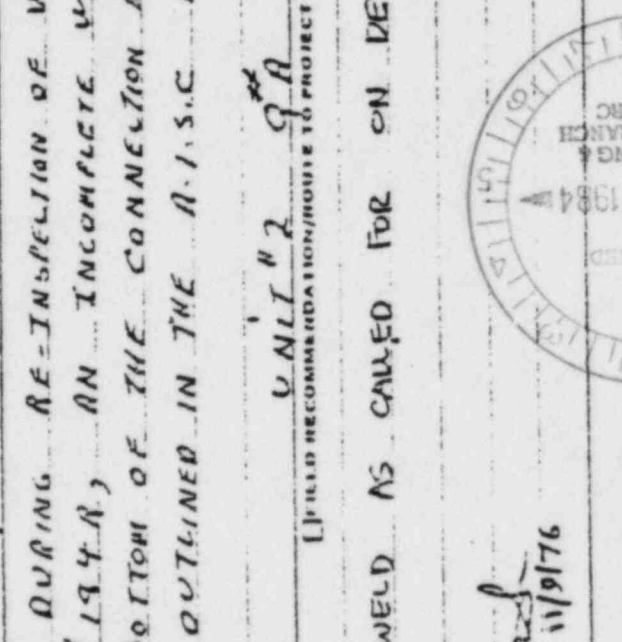 DURING RE-INSPECTION OF
194R, AN INCOMPLETE
OTTOM OF THE CONNECTION
OUTLINED IN THE A.I.S.C
UNIT #2
FIELD RECOMMENDATION/ROUTE TO PROJECT
WELD AS CALLED FOR ON DE
11/9/76
NG &
ANCH
RC
1984
ED